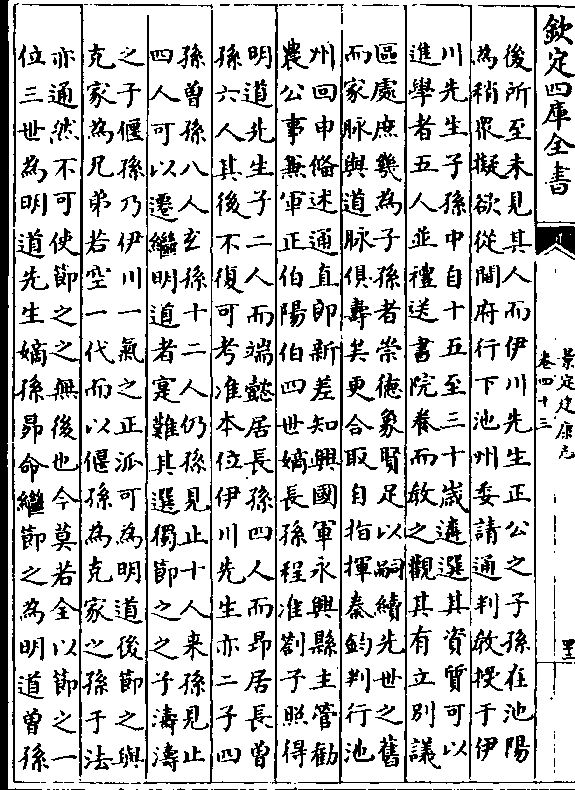 欽定四庫全書
景定建康志
卷四十三
後所至未見其人而伊川先生正公之子孫在池陽
為稍眾擬欲從閫府行下池州委請通判啟授于伊
川先生子孫中自十五至三十歲遴選其資質可以
進學者五人並禮送書院養而敎之觀其有立別議
區處庶幾為子孫者崇德象賢足以嗣續先世之舊
而家脉與道脉俱壽其更合取自指揮奏鈞判行池
州回申俻述通直郎新差知興國軍永興縣主管勸
農公事兼軍正伯陽伯四世嫡長孫程准劄子照得
明道先生子二人而端懿居長孫四人而昂居長曾
孫六人其後不復可考准本位伊川先生亦二子四
孫曾孫八人玄孫十二人仍孫見止十人来孫見止
四人可以遷繼明道者寔難其選獨節之之子濤濤
之子偃孫乃伊川一氣之正派可為明道後節之與
克家為兄弟若空一代而以偃孫為克家之孫于法
亦通然不可使節之之無後也今莫若全以節之一
位三世為明道先生嫡孫昴命繼節之為明道曾孫